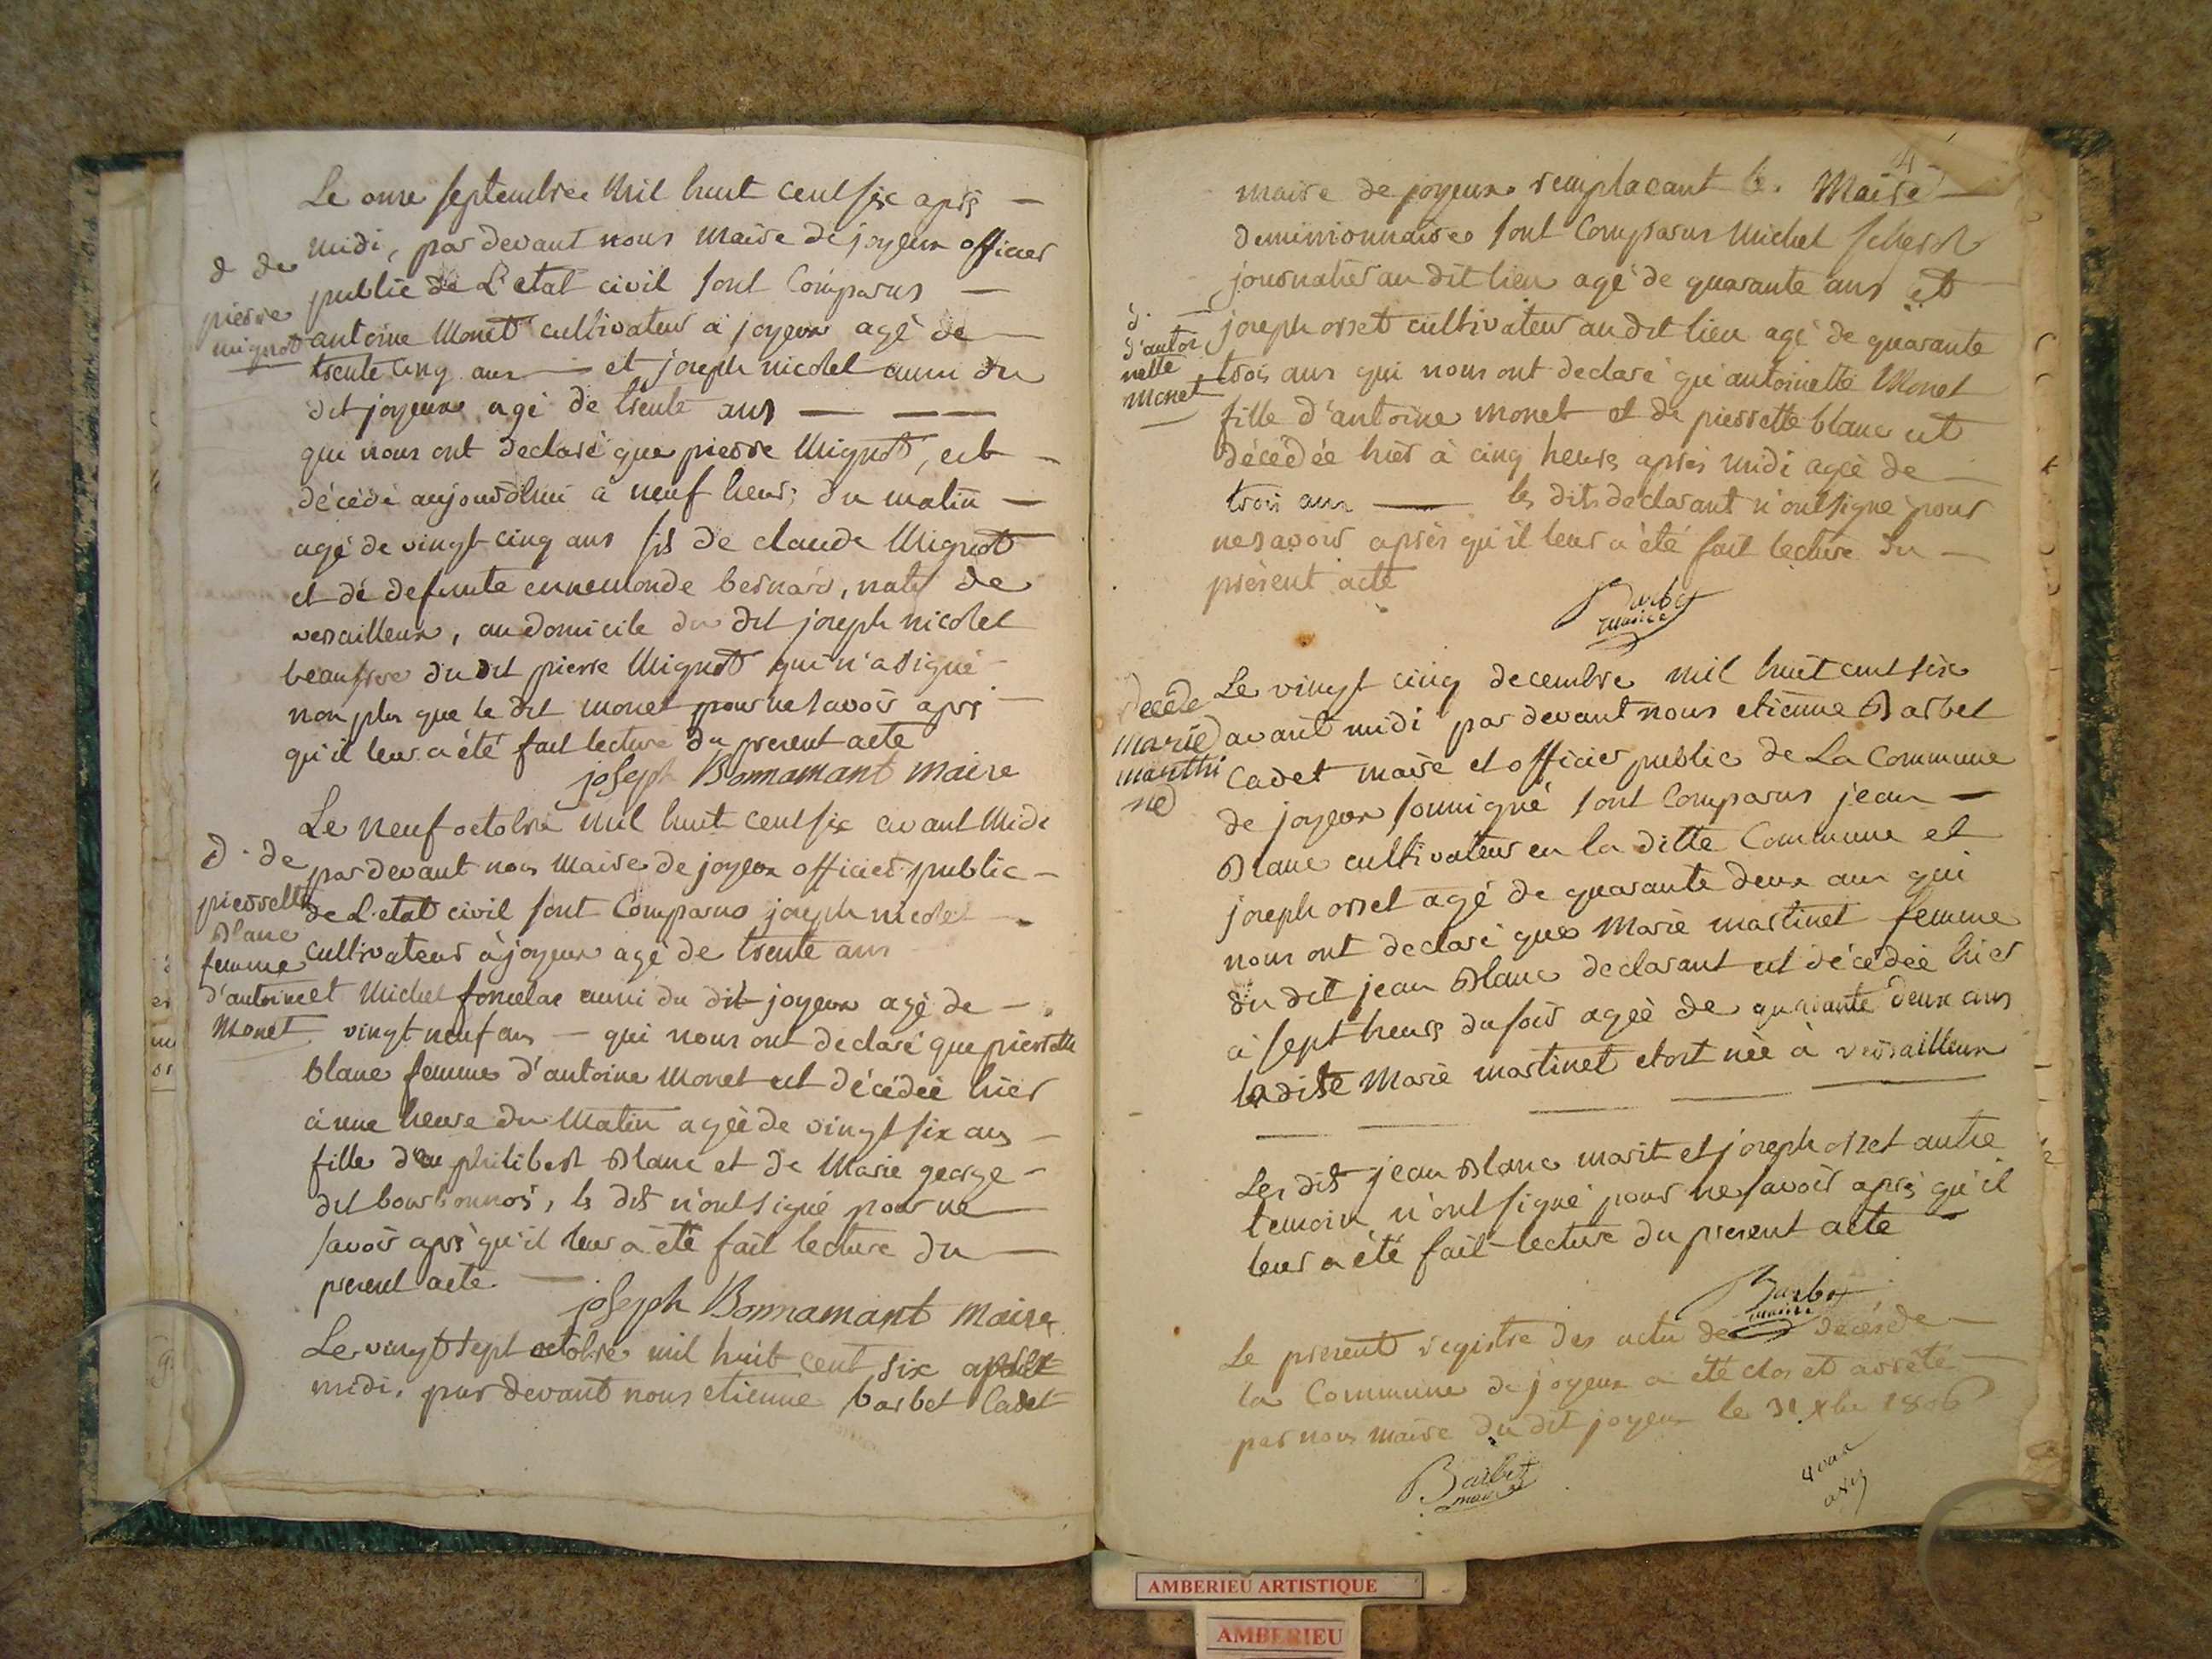 Le onze septembre mil huit cent six après
midi, par devant nous maire de joyeux officier
public de L'etat civil sont Comparus
antoine Monet cultivateur à joyeux agé de
trente cinq ans et joseph nicolet aussi du
dit joyeux agé de trente ans
qui nous ont declaré que pierre Mignot, est
décédé aujourdhui à neuf heurs du matin
agé de vingt cinq ans fils de claude Mignot
et dé defunte ennemonde bernard, natif de
versailleux, au domicile du dit joseph nicolet
beaufrere du dit pierre Mignot qui n'a signé
non plus que le dit monet pour ne savoir après
qu'il leur a été fait lecture du present acte
joseph Bonnamant maire
d de
pierre
mignot
Le neuf octobre mil huit cent six avant Midi
par devant nous maire de joyeux officier public
de L'etat civil sont Comparus joseph nicolet
cultivateur à joyeux agé de trente ans
et Michel aussi du dit joyeux agé de
vingt neuf ans qui nous ont declaré que pierrette
blanc femme d'antoine Monet est décédée hier
à une heure du Matin agée de vingt six ans
fille philibert Blanc et de Marie george
dit bourbonnois, ls dits n'ont signé pour ne
savoir après qu'il leur a été fait lecture du
present acte
joseph Bonnamant maire
d. de
pierrette
Blanc
femme
d'antoine
Monet
Le vingt sept octobre mil huit cent six après
midi, par devant nous etienne barbet Cadet
4
maire de joyeux remplacant le Maire
demissionnaire sont Comparus Michel
journalier au dit lieu agé de quarante ans et
joseph orset cultivateur au dit lieu agé de quarante
trois ans qui nous ont declaré qu'antoinette Monet
fille d'antoine monet et de pierrette blanc est
décédée hier à cinq heurs après midi agée de
trois ans les dits declarant n'ont signé pour
ne savoir après qu'il leur a été fait lecture du
présent acte
Barbet
maire
d.
d'antoi
nette
Monet
Le vingt cinq decembre mil huit cent six
avant midi par devant nous etienne Barbet
Cadet maire et officier public de La Commune
de joyeux soussigné sont Comparus jean
Blanc cultivateur en la ditte Commune et
joseph orset agé de quarante deux ans qui
nous ont declaré que Marie martinet femme
du dit jean Blanc declarant est décédée hier
à sept heurs du soir agée de quarante deux ans
la dite Marie martinet etoit née à versailleux
Les dits jean Blanc marit et joseph orset autre
temoin n'ont signé pour ne savoir après qu'il
leur a été fait lecture du present acte
Barbet
maire
Decede
marie
marthi
ne
Le present registre des actes de décés de
la Commune de joyeux a été clos et arrêté
par nous maire du dit joyeux le 31 Xbre 1806
Barbet
maire
AMBERIEU ARTISTIQUE
AMBERIEU